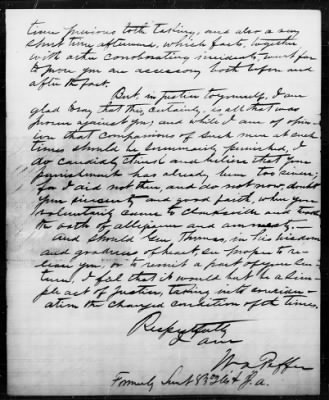 time previous to the taking, and also a very
short time afterward, which facts, together
with other corroborating incidents, went far
to prove you an accessory both before and
after the fact.
But, in justice to yourself, I am
glad to say that this, certainly, is all that was
proven against you; and while I am of opin-
ion that companions of such men at such
times should be summarily punished, I
do candidly think and believe that your
punishment has already been too severe;
for I did not then, and do not now, doubt
your sincerity and good faith, when you
voluntarily came to Clarksville and took
the oath of allegiance and amnesty.—
And should Gen. Thomas, in his wisdom
and goodness of heart, see proper to re-
lease you, or to remit a part of your sen-
tence, I feel that it would but be a sim-
ple act of justice, taking into consider-
ation the changed condition of the times.
Respectfully
I am
Formerly Lieut 83